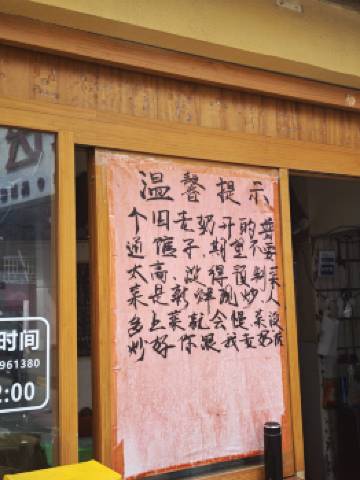 温馨提示
个旧老奶开的普
通馆子,期望不要
太高,没得预制菜
菜是新鲜现炒,人
多上菜就会慢,菜没
炒好你跟我爱
时间
961380
2:00